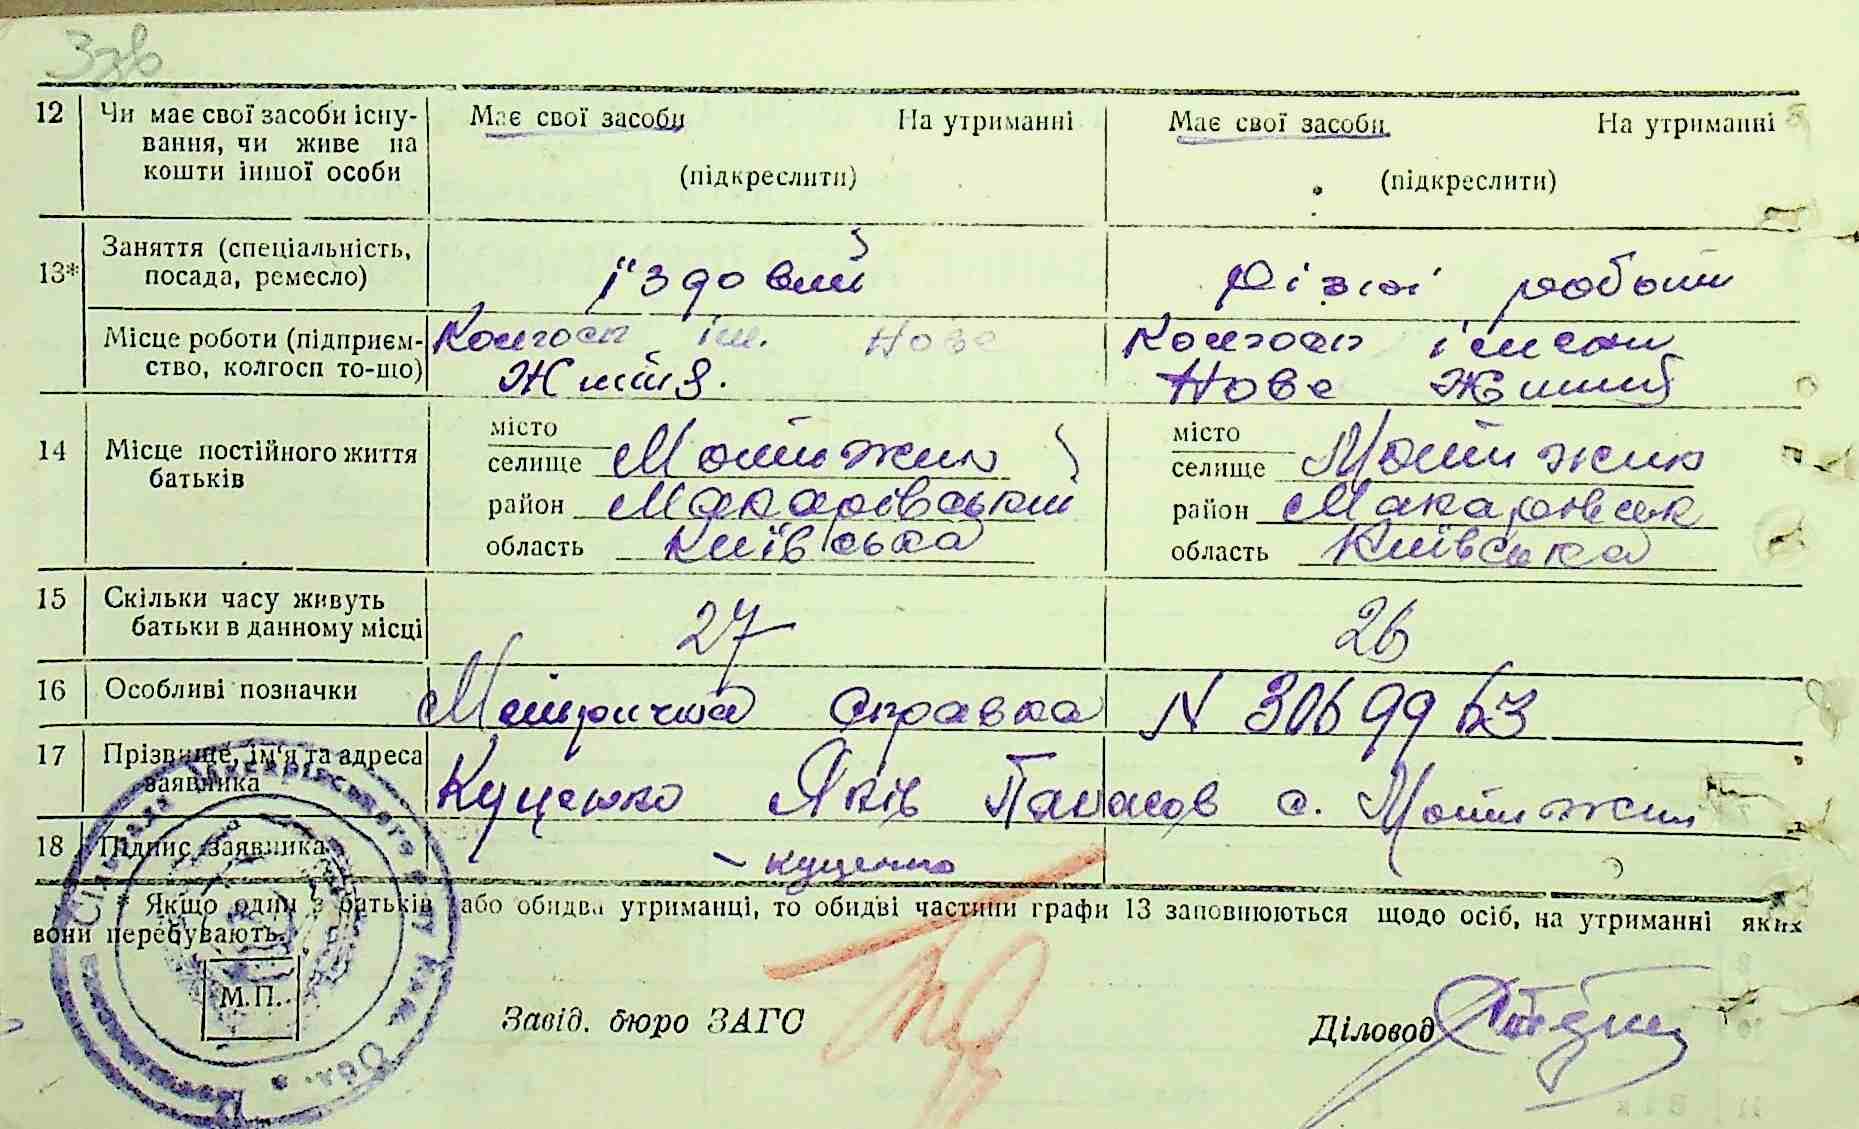 12 Чи має свої засоби існу-
вання, чи живе на
кошти іншої особи
Має свої засоби На утриманні
(підкреслити)
Має свої засоби На утриманні
(підкреслити)
13* Заняття (спеціальність,
посада, ремесло)
їздовий
Різні роботи
Місце роботи (підприєм-
ство, колгосп то-що)
Колгосп ім. Нове
Життя.
Колгосп імени
Нове Життя
14 Місце постійного життя
батьків
місто
селище Мотижин
район Макарівський
область Київська
місто
селище Мотижин
район Макарівськ
область Київська
15 Скільки часу живуть
батьки в данному місці
27
26
16 Особливі позначки
Метрична справка N 3069963
17 Прізвище, ім'я та адреса
заявника
Куценко Яків Панасов с. Мотижин
18 Підпис заявника
Куценко
* Якщо один з батьків або обидва утриманці, то обидві частини графи 13 заповнюються щодо осіб, на утриманні яких
вони перебувають.
М.П.
Завід. бюро ЗАГС
Діловод